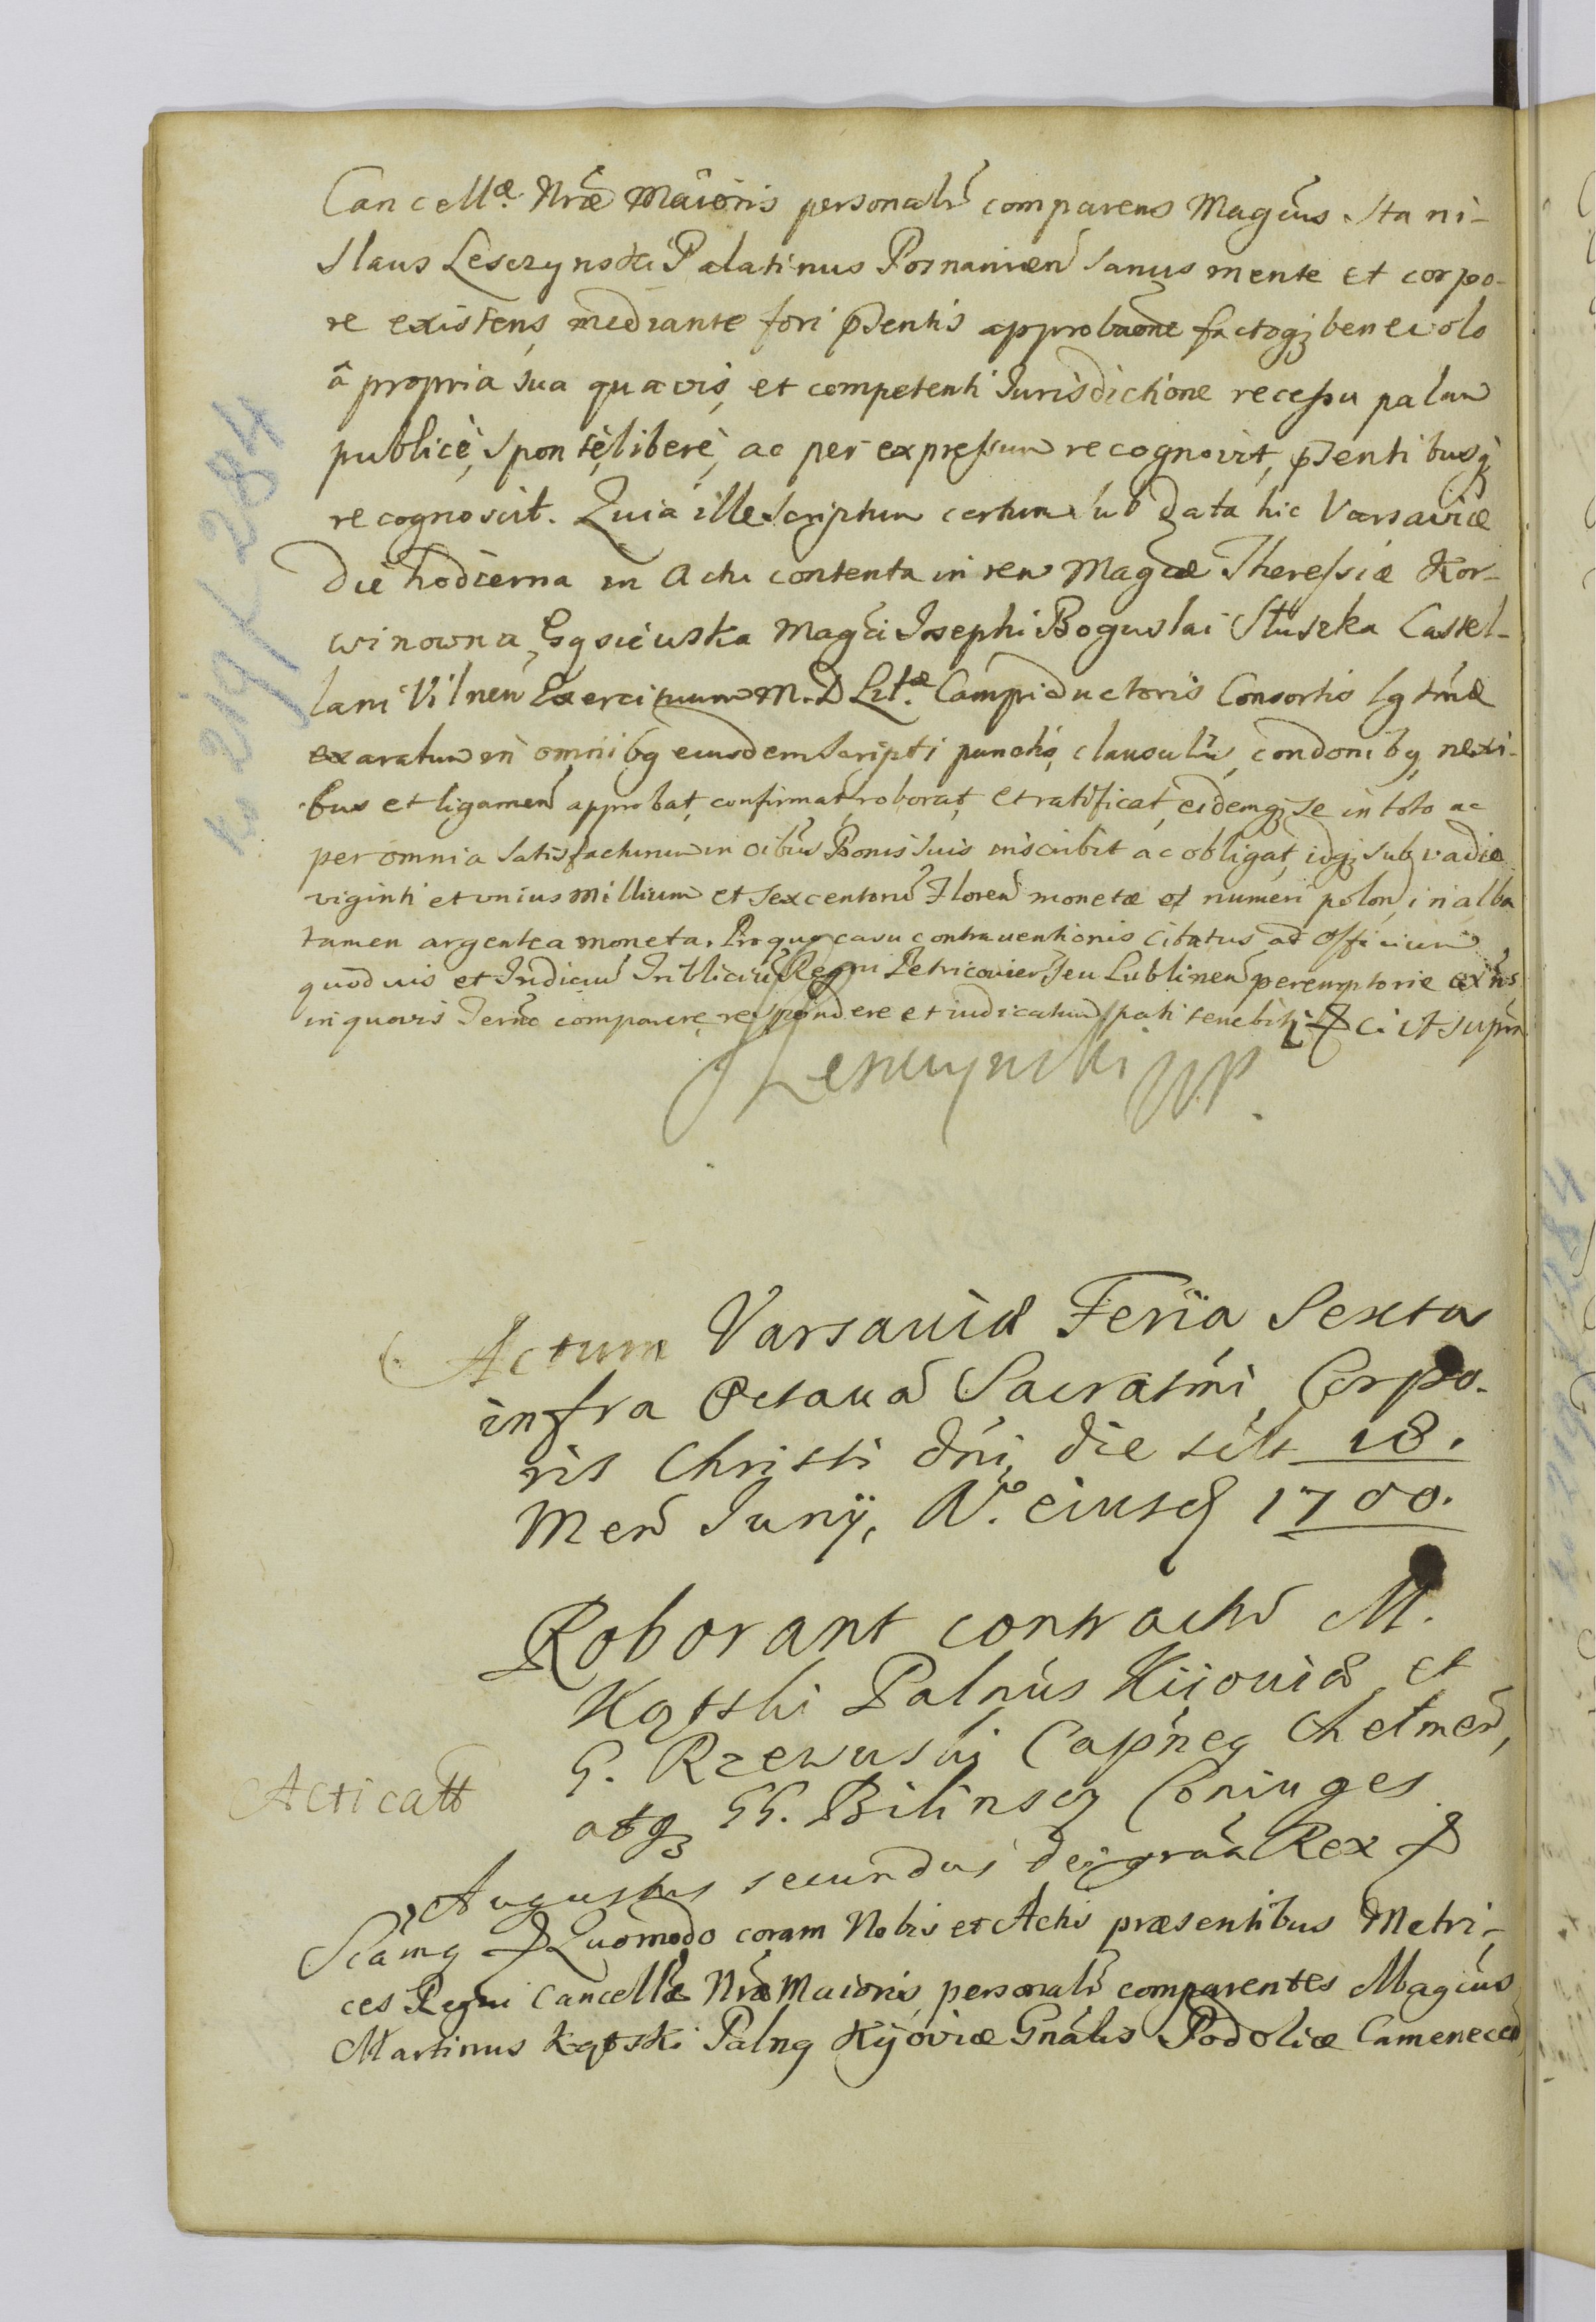 Cancell.æ Nræ Maioris personalr comparens Magcus Stani-
slaus Lesczynski Palatinus Posnanien sanus mente et corpo-
re existens, mediante fori psentis approbaone factoq; benevolo
â propria sua quavis, et competenti Jurisdictione recessu palam
publicè, spontè, liberè, ac per expressum recognovit, psentibusq;
recognoscit. Quia ille scriptum certum sub data hic Varsaviæ
die hodierna in Actu contenta in rem Magcæ Theressiæ Kor-
winowna Gąsiewska Magci Josephi Boguslai Słuszka Castel-
lani Vilnen Exercituum M. D. Lit.æ Campiductoris Consortis lgtmæ
exaratum in omnibq eiusdem scripti punctis, clausulis, condonibq, nexi-
bus et ligamen approbat, confirmat, roborat, et ratificat, eidemq; se in toto ac
per omnia satisfacturum in oibus Bonis suis inscribit ac obligat, idq; sub vadio
viginti et unius millium et sexcentoru Floren monetæ et numeri polon, in alba
tamen argentea moneta. Pro quo casu contraventionis citatus ad officium
quodvis et Judiciu Tribliciu Regni Petricovien, seu Lublinen peremptorie exns
in quovis Terno comparere respondere et iudicatum pati tenebit: &ci ut supra
SLesczynski WP.
Actum Varsaviæ Feria Sexta
infra Octava Sacratmi Corpo-
ris Christi dni, die silt 18.
Men Junÿ, Ao. eiusd 1700.
Roborant contractu M.
Kątski Palnus Kijoviæ et
G. Rzewuski Capneq Chelmen,
atq; GG. Bilinscy Coniuges
Acticatt
Augustus secundus dei graa Rex &
Sciamq & Quomodo coram Nobis et Actis præsentibus Metri-
ces Regni Cancellæ Nræ Maioris, personalr comparentes Magcus
Martinus Kątski Palnq Kijoviæ Gnalis Podoliæ Camenecen